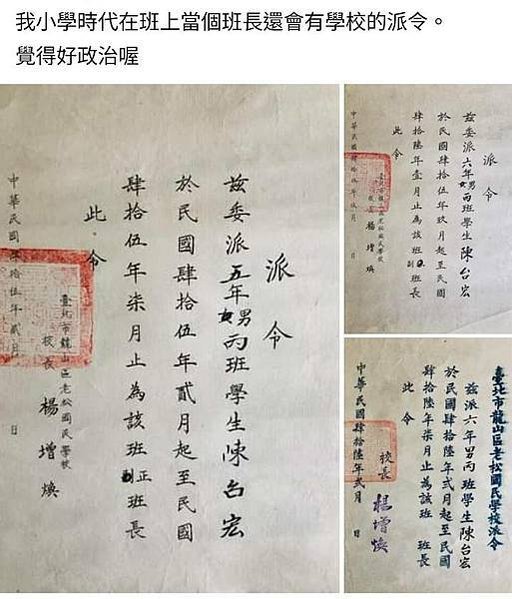 我小學時代在班上當個班長還會有學校的派令。
覺得好政治喔
派令
茲委派五年男女丙班學生陳台宏
於民國肆拾伍年貳月起至民國
肆拾伍年柒月止為該班副正班長
此令
臺北市龍山區老松國民學校
校長 楊增煥
中華民國肆拾伍年貳月 日
派令
茲委派六年男女丙班學生陳台宏
於民國肆拾伍年玖月起至民國
肆拾陸年壹月止為該班副正班長
此令
臺北市龍山區老松國民學校
校長 楊增煥
中華民國肆拾伍年玖月 日
臺北市龍山區老松國民學校派令
茲派六年男丙班學生陳台宏
於民國肆拾陸年貳月起至民國
肆拾陸年柒月止為該班 班長
此令
校長 楊增煥
中華民國肆拾陸年貳月 日